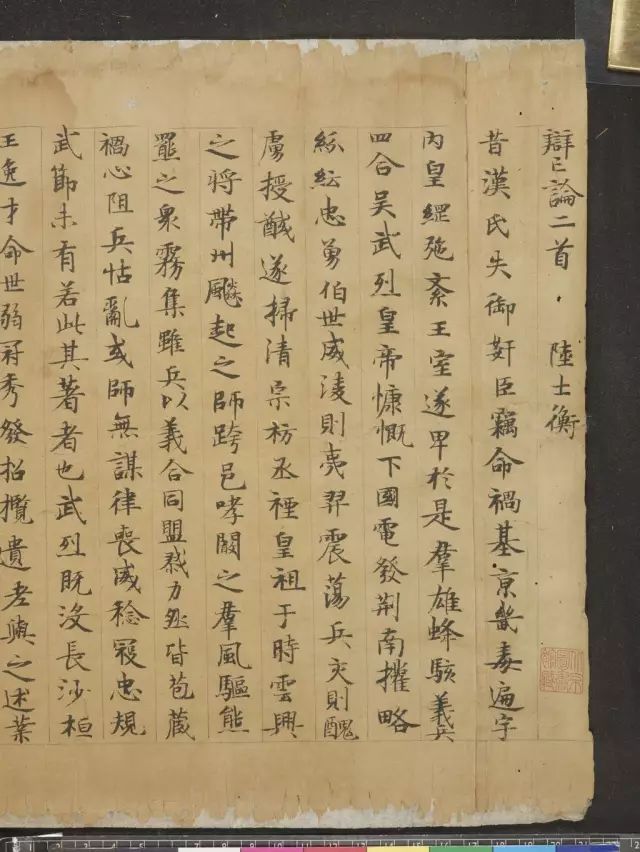 辯亡論二首 陸士衡
昔漢氏失御奸臣竊命禍基京畿毒遍宇
內皇綱弛紊王室遂卑於是羣雄蜂駭義兵
四合吳武烈皇帝慷慨下國電發荊南摧略
紛紜忠勇伯世威淩則夷羿震蕩兵交則醜
虜授馘遂掃清宗祊丞禋皇祖于時雲興
之將帶州飈起之師跨邑哮闞之羣風驅熊
羆之衆霧集雖兵以義合同盟戮力然皆苞藏
禍心阻兵怙亂或師無謀律喪威稔寇忠規
武節未有若此其著者也武烈既没長沙桓
王逸才命世弱冠秀發招攬遺老與之述業